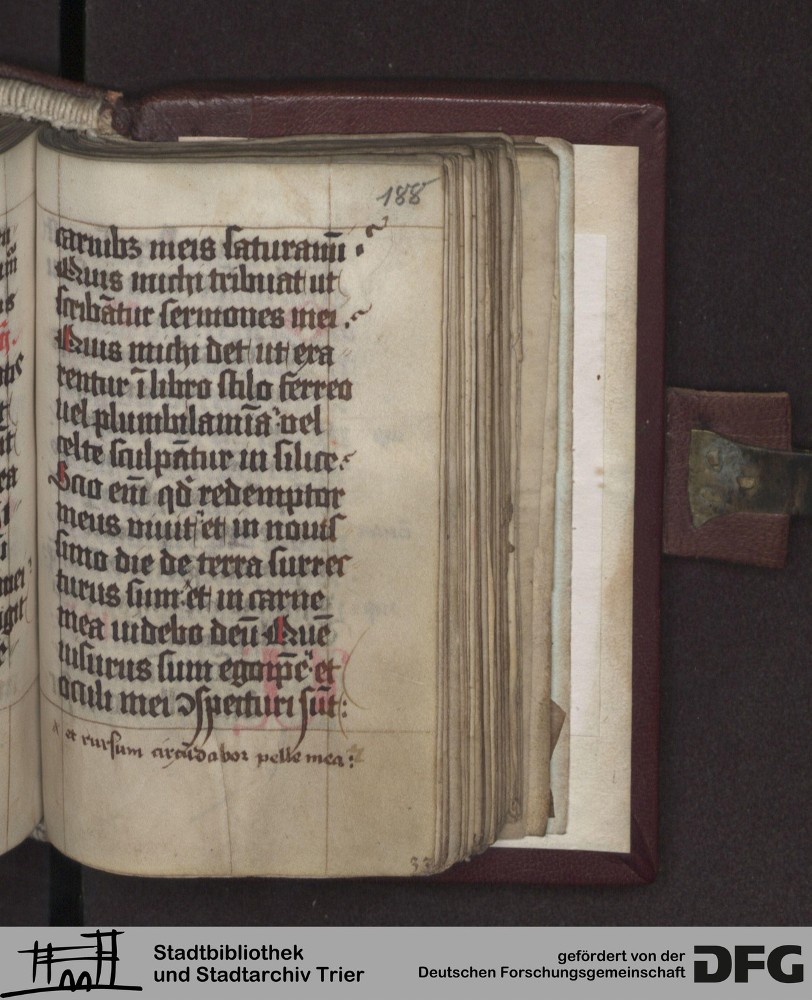 188
carnibꝫ meis saturamī
Quis michi tribuat ut
scribātur sermones mei
Quis michi det ut exa
rentur ī libro stilo ferreo
uel plumbi lamīa vel
celte sculpātur in silice
Scio em̄ qd̄ redemptor
meus viuit et in nouis
simo die de terra surrec
turus sum et in carne
mea uidebo deū Quē
uisurus sum ego ip̄e et
oculi mei ↄspecturi sūt:
et rursum circūdabor pelle mea:
33
Stadtbibliothek
und Stadtarchiv Trier
gefördert von der
Deutschen Forschungsgemeinschaft
DFG